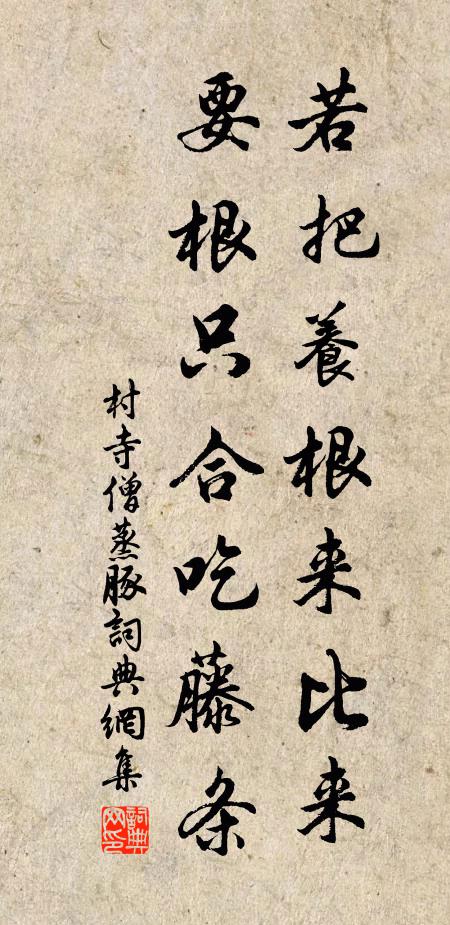 若把養根来比来
要根只合吃藤条
村寺僧蒸豚詞典網集
詞典网印